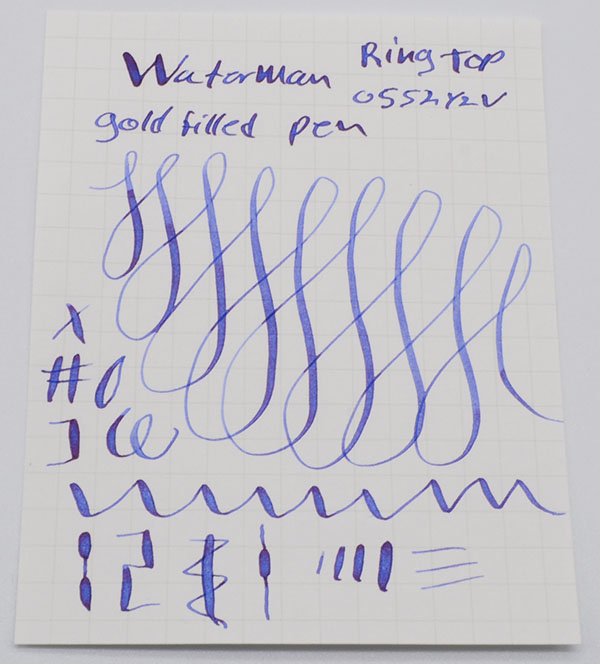 Waterman Ring Top
0552 1/2V
gold filled pen